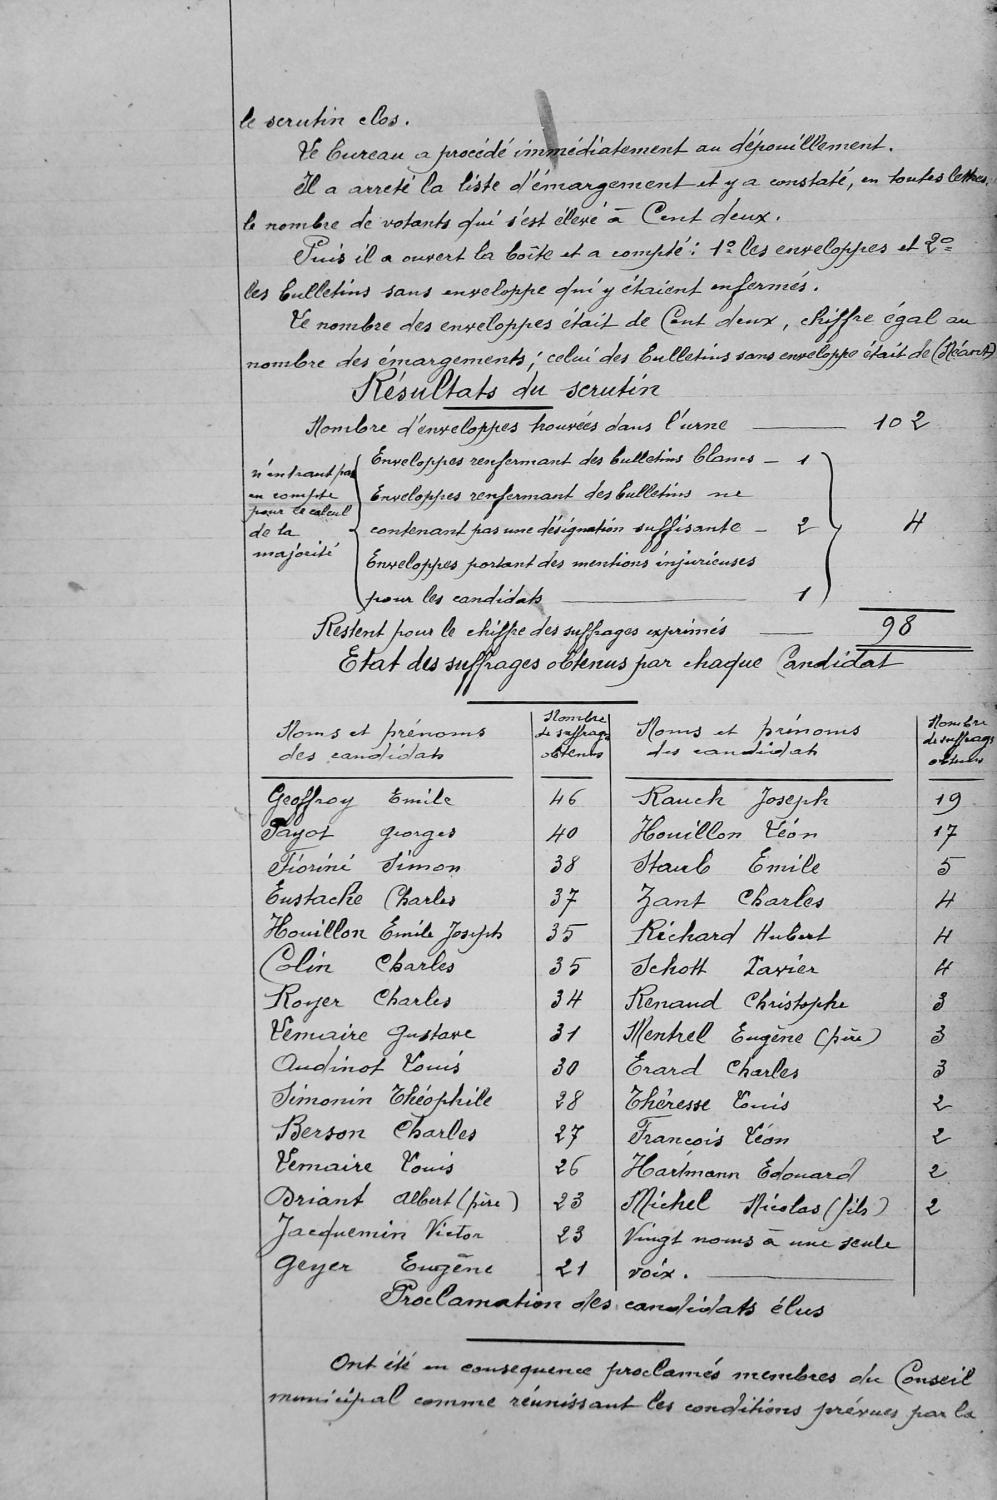 le scrutin clos.
Le bureau a procédé immédiatement au dépouillement.
Il a arreté la liste d'émargement et y a constaté, en toutes lettres,
le nombre de votants qui s'est élevé à Cent deux.
Puis il a ouvert la boîte et a compté : 1º les enveloppes et 2º
les bulletins sans enveloppe qui y étaient enfermés.
Le nombre des enveloppes était de Cent deux, chiffre égal au
nombre des émargements ; celui des bulletins sans enveloppe était de (Néant)
Résultats du scrutin
Nombre d'enveloppes trouvées dans l'urne — 102
n'entrant pas
en compte
pour le calcul
de la
majorité
Enveloppes renfermant des bulletins blancs — 1
Enveloppes renfermant des bulletins ne
contenant pas une désignation suffisante — 2
4
Enveloppes portant des mentions injurieuses
pour les candidats — 1
Restent pour le chiffre des suffrages exprimés — 98
Etat des suffrages obtenus par chaque Candidat
Noms et prénoms
des candidats
Nombre
de suffrages
obtenus
Noms et prénoms
des candidats
Nombre
de suffrages
obtenus
Geoffroy Emile 46 Rauch Joseph 19
Payot Georges 40 Houillon Léon 17
Fiorini Simon 38 Staub Emile 5
Eustache Charles 37 Zant Charles 4
Houillon Emile Joseph 35 Richard Hubert 4
Colin Charles 35 Schott Xavier 4
Royer Charles 34 Renaud Christophe 3
Lemaire Gustave 31 Mentrel Eugène (père) 3
Audinot Louis 30 Erard Charles 3
Simonin Théophile 28 Théresse Louis 2
Berson Charles 27 François Léon 2
Lemaire Louis 26 Hartmann Edouard 2
Briant Albert (père) 23 Michel Nicolas (fils) 2
Jacquemin Victor 23 Vingt noms à une seule
Geyer Eugène 21 voix.
Proclamation des candidats élus
Ont été en consequence proclamés membres du Conseil
municipal comme réunissant les conditions prévues par la